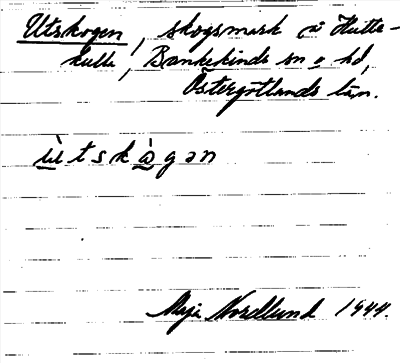 Utskogen, skogsmark å Hutte-
kulle, Bankekinds sn o. hd,
Östergötlands län.
ùtskògən
Maja Nordlund 1944.